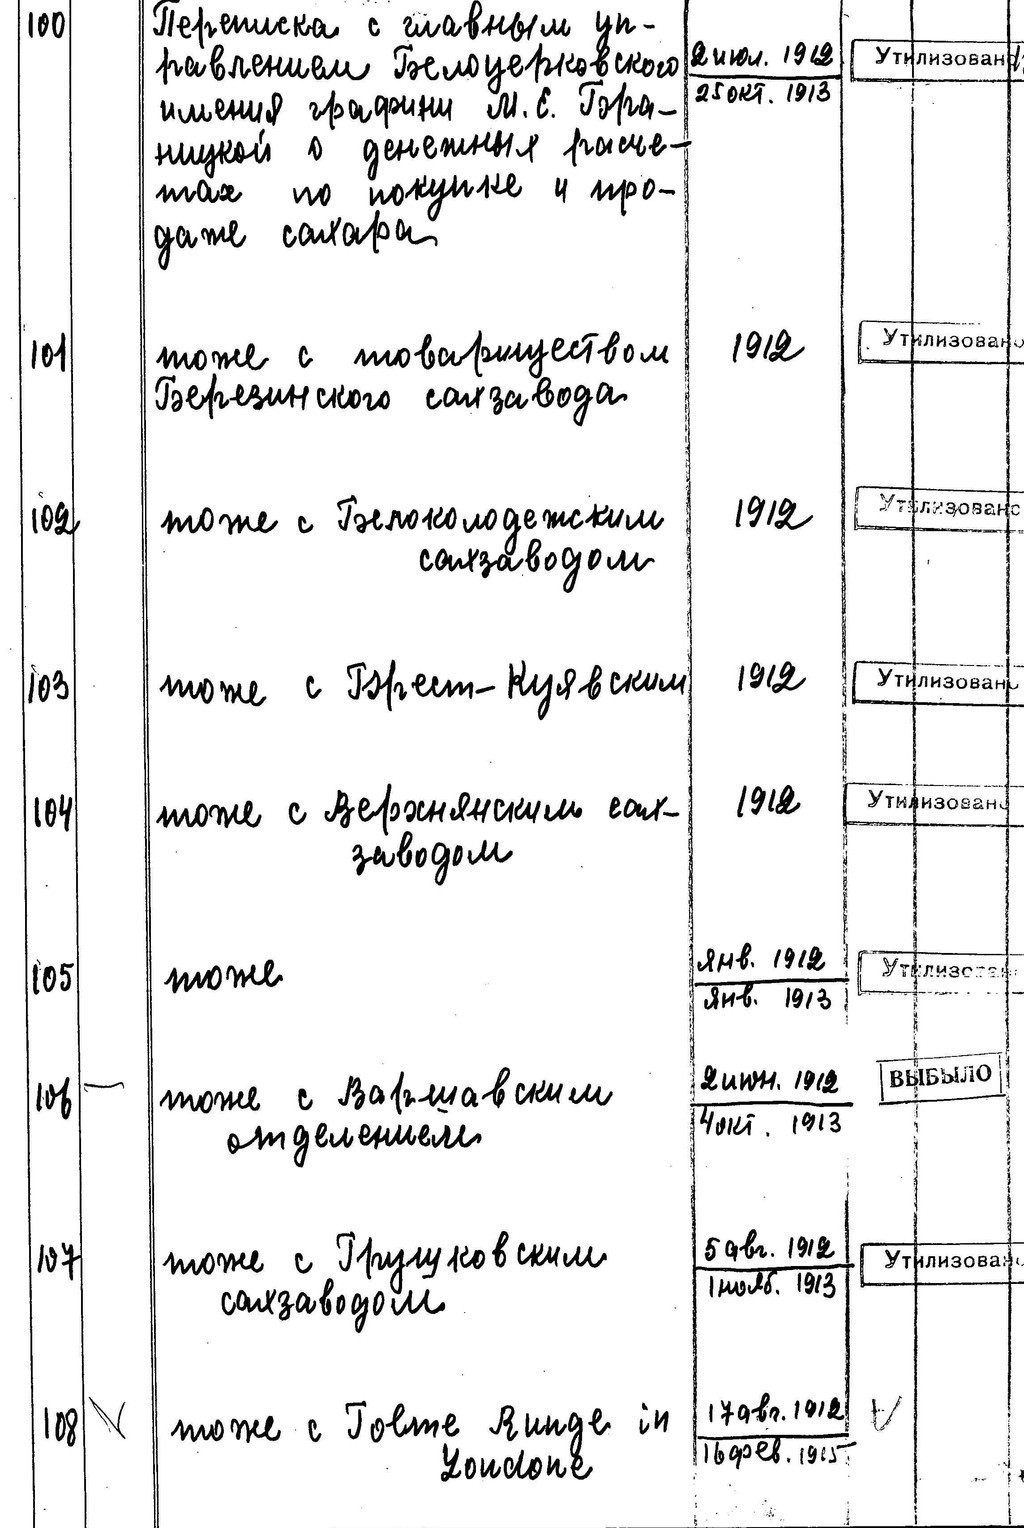 100
Переписка с главным уп-
равлением Белоцерковского
имения графини М.Е. Бра-
ницкой о денежных расче-
тах по покупке и про-
даже сахара
2 июл. 1912
25 окт. 1913
Утилизовано
101
тоже с товариществом
Березинского сахзавода
1912
Утилизовано
102
тоже с Белоколодежским
сахзаводом
1912
Утилизовано
103
тоже с Брест-Куявским
1912
Утилизовано
104
тоже с Верхнянским сах-
заводом
1912
Утилизовано
105
тоже
янв. 1912
янв. 1913
Утилизовано
106
тоже с Варшавским
отделением
2 июн. 1912
4 окт. 1913
ВЫБЫЛО
107
тоже с Грушковским
сахзаводом
5 авг. 1912
1 нояб. 1913
Утилизовано
108
тоже с Runge in
Londone
17 авг. 1912
16 фев. 1915